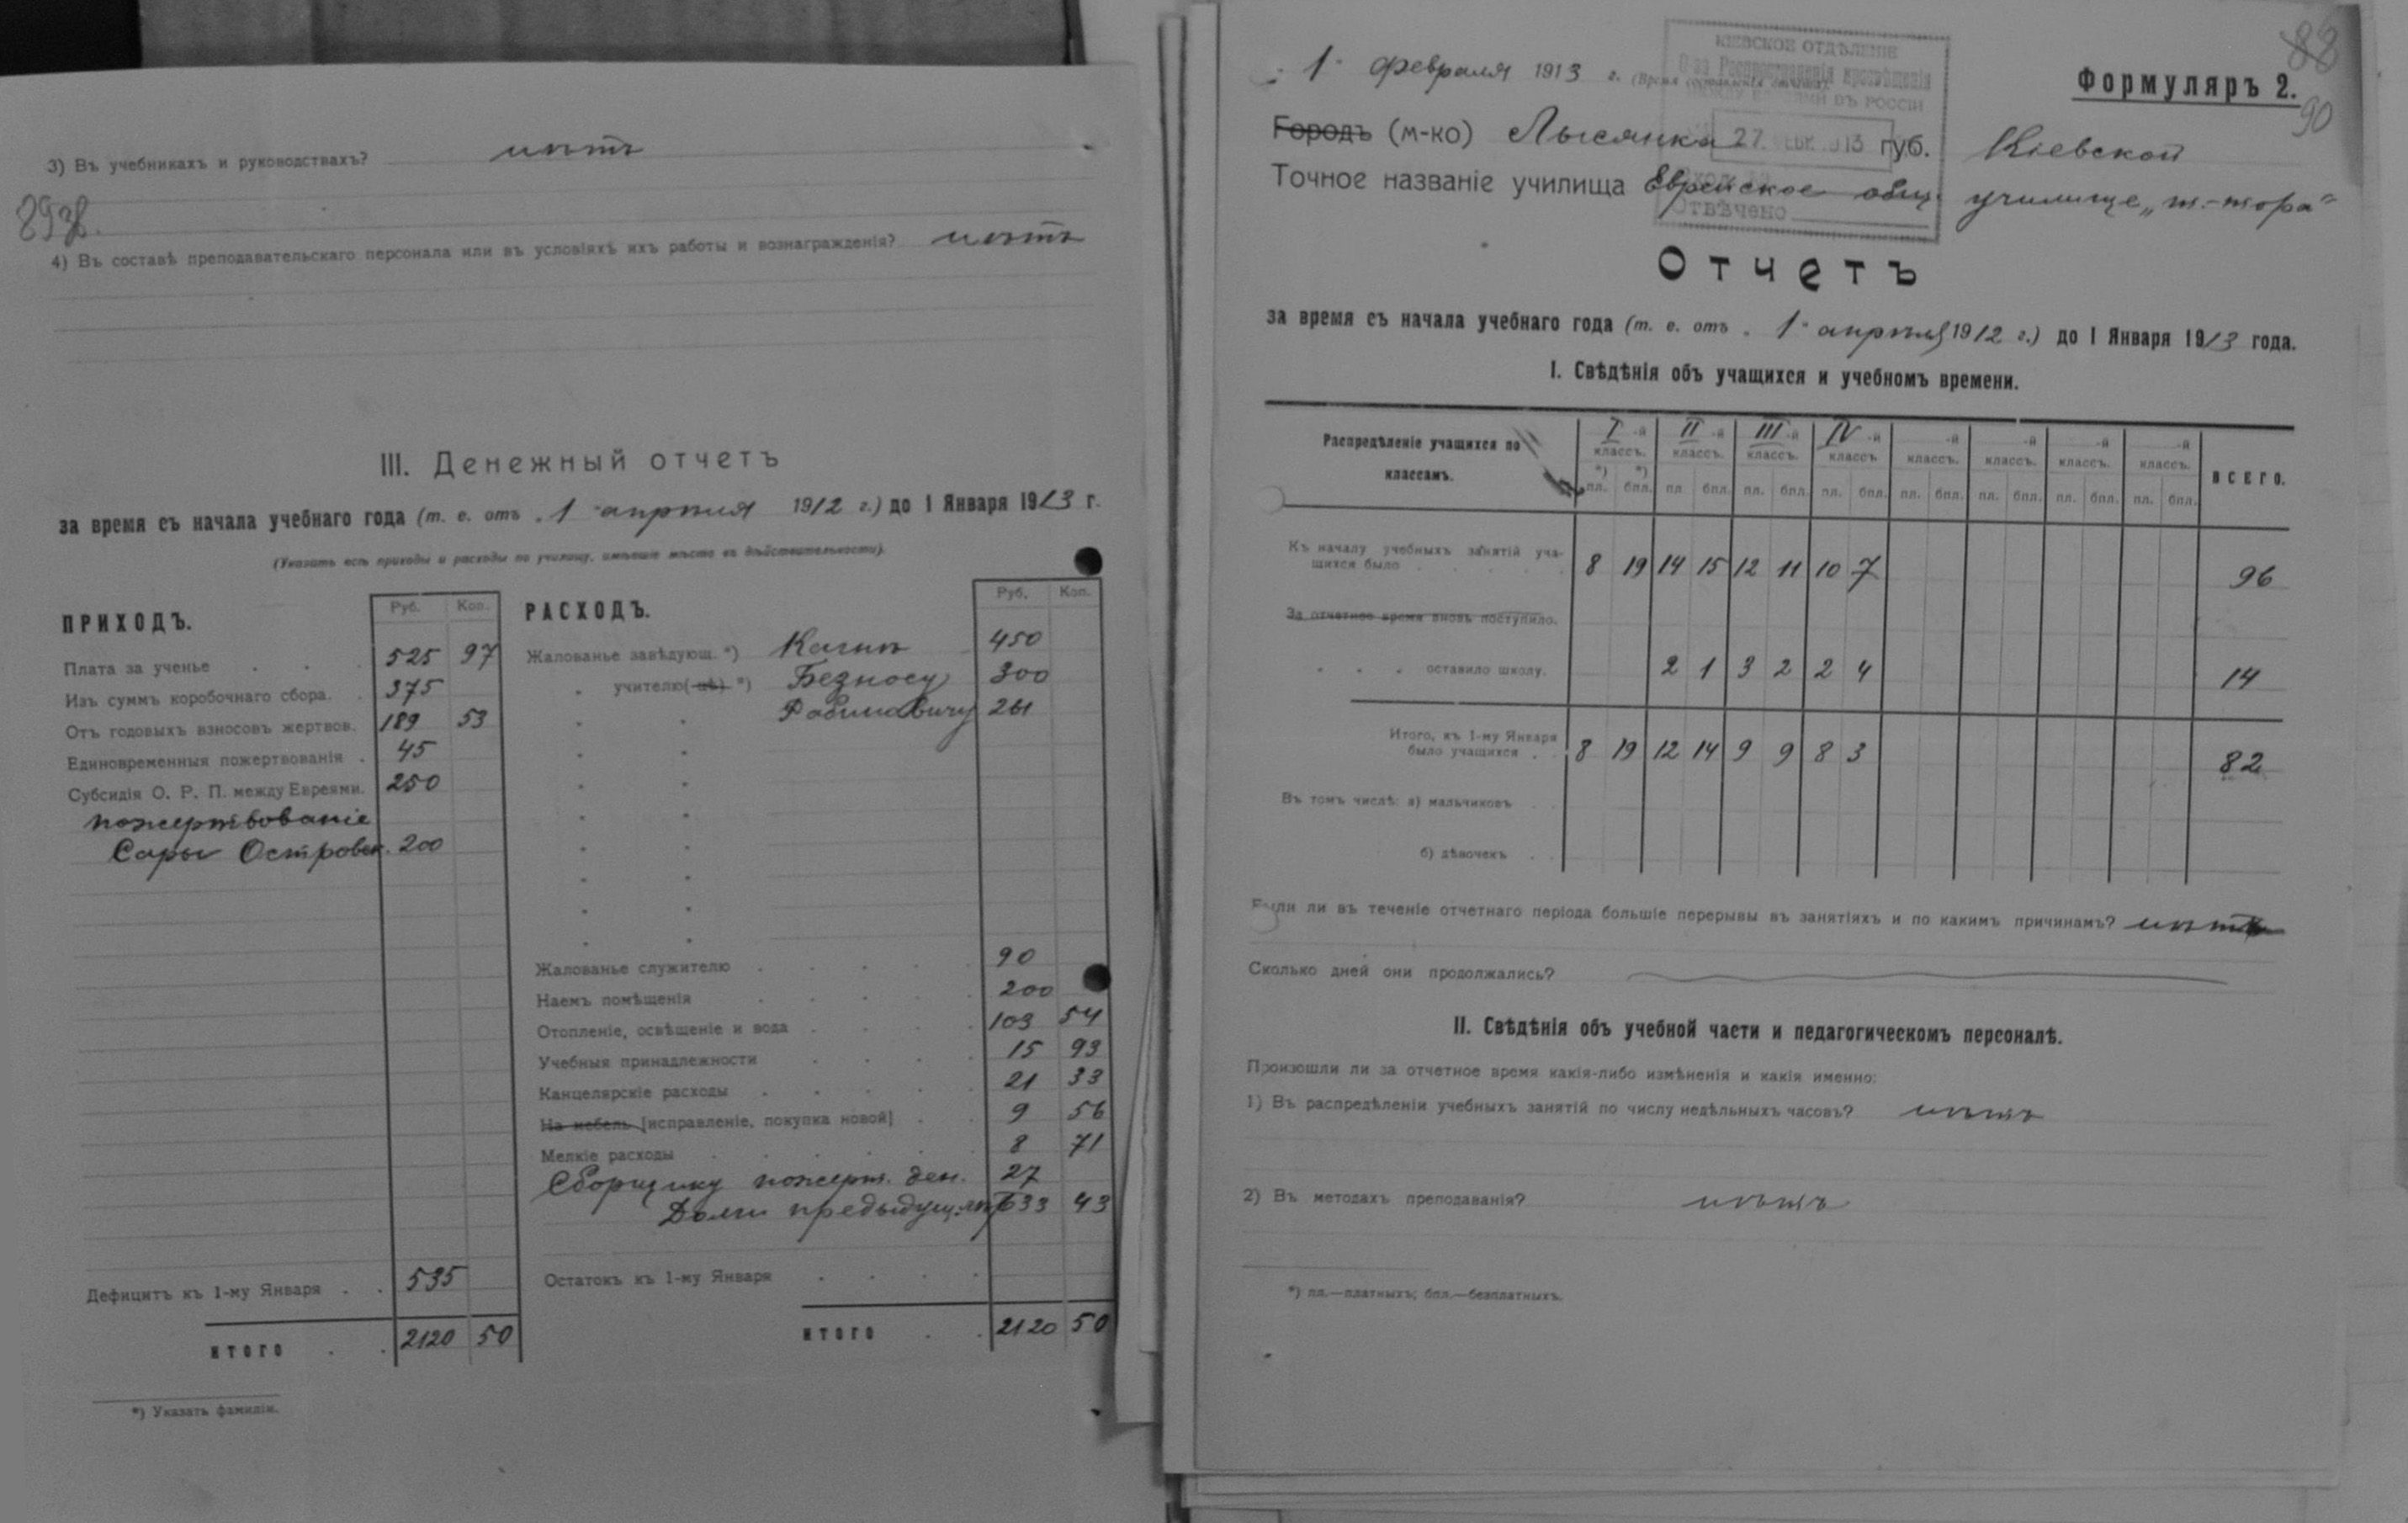 3) Въ учебникахъ и руководствахъ? нѣтъ
89об.
4) Въ составѣ преподавательскаго персонала или въ условіяхъ ихъ работы и вознагражденія? нѣтъ
III. Денежный отчетъ
за время съ начала учебнаго года (т. е. отъ „1“ апрѣля 1912 г.) до 1 Января 1913 г.
(Указать всѣ приходы и расходы по училищу, имѣвшіе мѣсто въ дѣйствительности).
ПРИХОДЪ. Руб. Коп.
Плата за ученье 525 97
Изъ суммъ коробочнаго сбора. 375
Отъ годовыхъ взносовъ жертвов. 189 53
Единовременныя пожертвованія 45
Субсидія О. Р. П. между Евреями. 250
пожертвованіе
Сары Островск. 200
Дефицитъ къ 1-му Января 535
ИТОГО 2120 50
*) Указать фамиліи.
РАСХОДЪ. Руб. Коп.
Жалованье завѣдующ. *) 450
„ учителю(-цѣ) *) Безносу 300
„ „ Рабиновичу 261
Жалованье служителю 90
Наемъ помѣщенія 200
Отопленіе, освѣщеніе и вода 103 54
Учебныя принадлежности 15 93
Канцелярскіе расходы 21 33
На мебель [исправленіе, покупка новой] 9 56
Мелкіе расходы 8 71
Сборщику пожерт. ден. 27
Долги предыдущ. 633 43
Остатокъ къ 1-му Января
ИТОГО 2120 50
88
90
КІЕВСКОЕ ОТДѢЛЕНІЕ
О-ва Распространенія просвѣщенія
МЕЖДУ ЕВРЕЯМИ ВЪ РОССІИ
27 ФЕВР. 1913
Отвѣчено
„1“ февраля 1913 г. (Время составленія отчета).
Формуляръ 2.
Городъ (м-ко) Лысянка губ. Кіевской
Точное названіе училища Еврейское общ. училище „т.-тора“
Отчетъ
за время съ начала учебнаго года (т. е. отъ „1“ апрѣля 1912 г.) до 1 Января 1913 года.
I. Свѣдѣнія объ учащихся и учебномъ времени.
Распредѣленіе учащихся по классамъ. I-й классъ. II-й классъ. III-й классъ. IV-й классъ -й классъ. -й классъ. -й классъ. -й классъ. ВСЕГО.
*) пл. *) бпл. пл. бпл. пл. бпл. пл. бпл. пл. бпл. пл. бпл. пл. бпл. пл. бпл.
Къ началу учебныхъ занятій уча-
щихся было 8 19 14 15 12 11 10 7 96
За отчетное время вновь поступило.
„ „ „ оставило школу. 2 1 3 2 2 4 14
Итого, къ 1-му Января
было учащихся 8 19 12 14 9 9 8 3 82
Въ томъ числѣ: а) мальчиковъ
б) дѣвочекъ
Были ли въ теченіе отчетнаго періода большіе перерывы въ занятіяхъ и по какимъ причинамъ? нѣтъ
Сколько дней они продолжались?
II. Свѣдѣнія объ учебной части и педагогическомъ персоналѣ.
Произошли ли за отчетное время какія-либо измѣненія и какія именно:
1) Въ распредѣленіи учебныхъ занятій по числу недѣльныхъ часовъ? нѣтъ
2) Въ методахъ преподаванія? нѣтъ
*) пл.—платныхъ; бпл.—безплатныхъ.